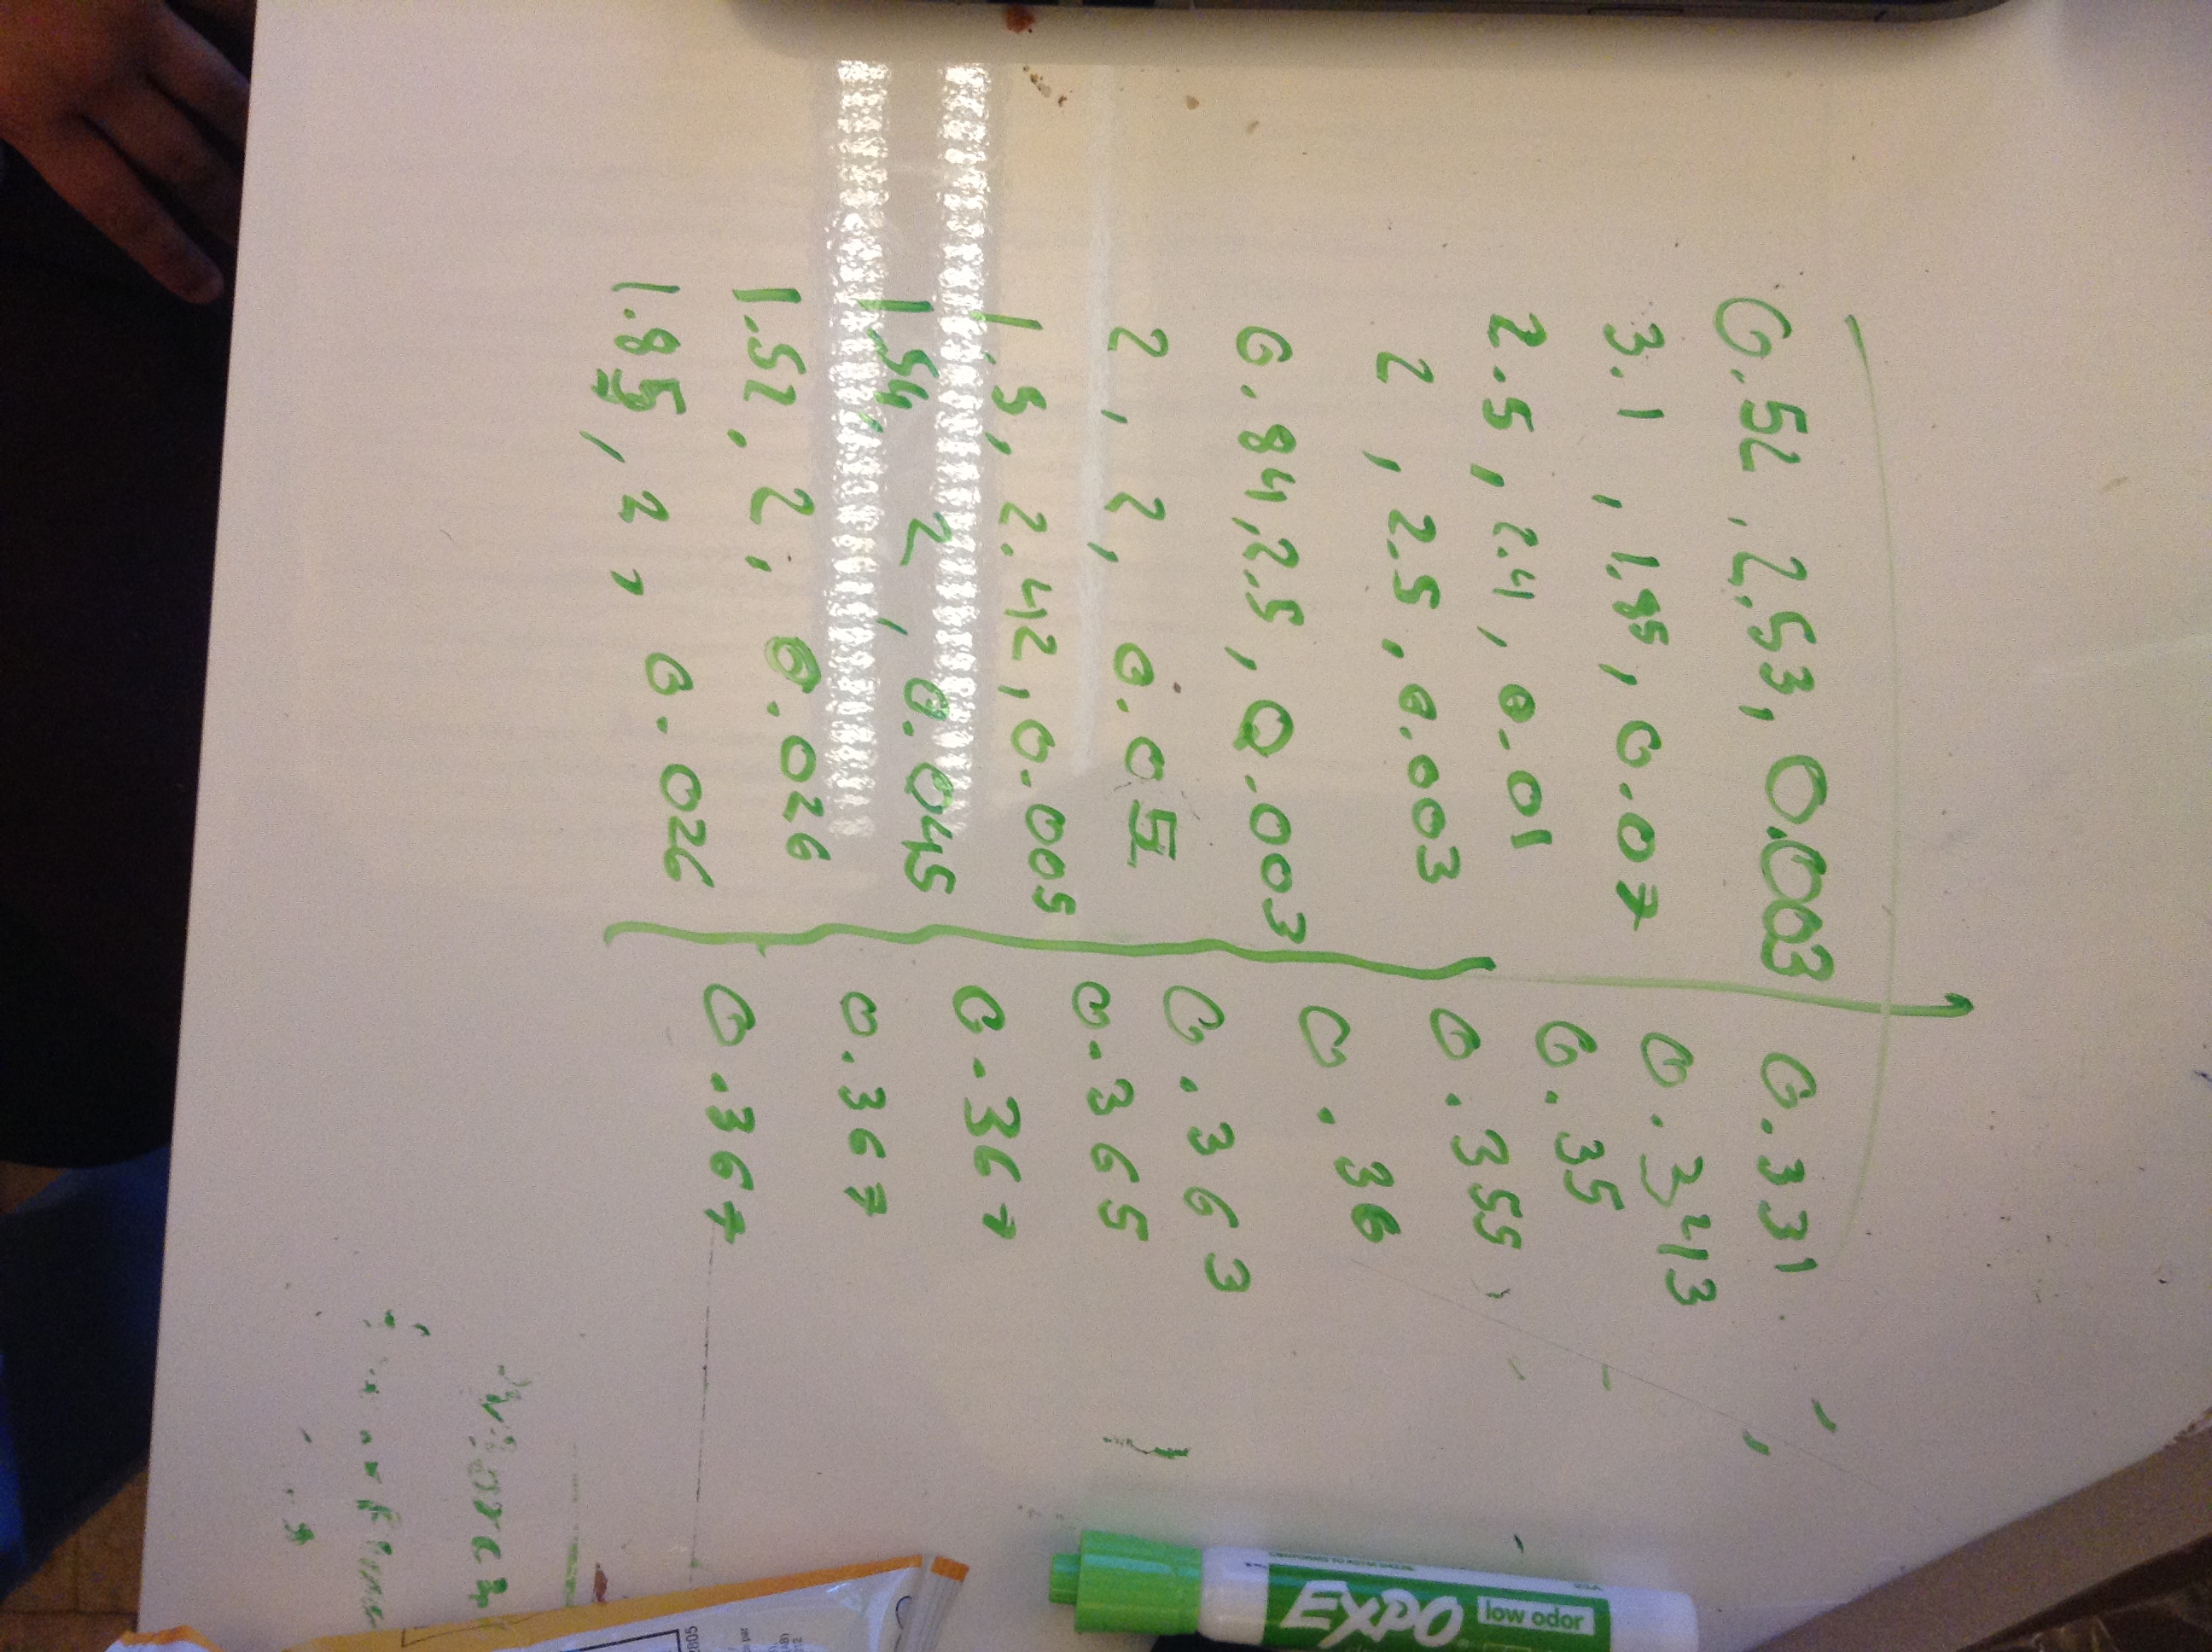 0.52, 2.53, 0.003 0.331
3.1, 1.85, 0.07 0.343
2.5, 2.4, 0.01 0.35
2, 2.5, 0.003 0.355
0.84, 2.5, 0.003 0.36
2, 2, 0.05 0.363
1.5, 2.42, 0.005 0.365
1.54, 2, 0.045 0.367
1.52, 2, 0.026 0.367
1.85, 2, 0.026 0.367
EXPO low odor